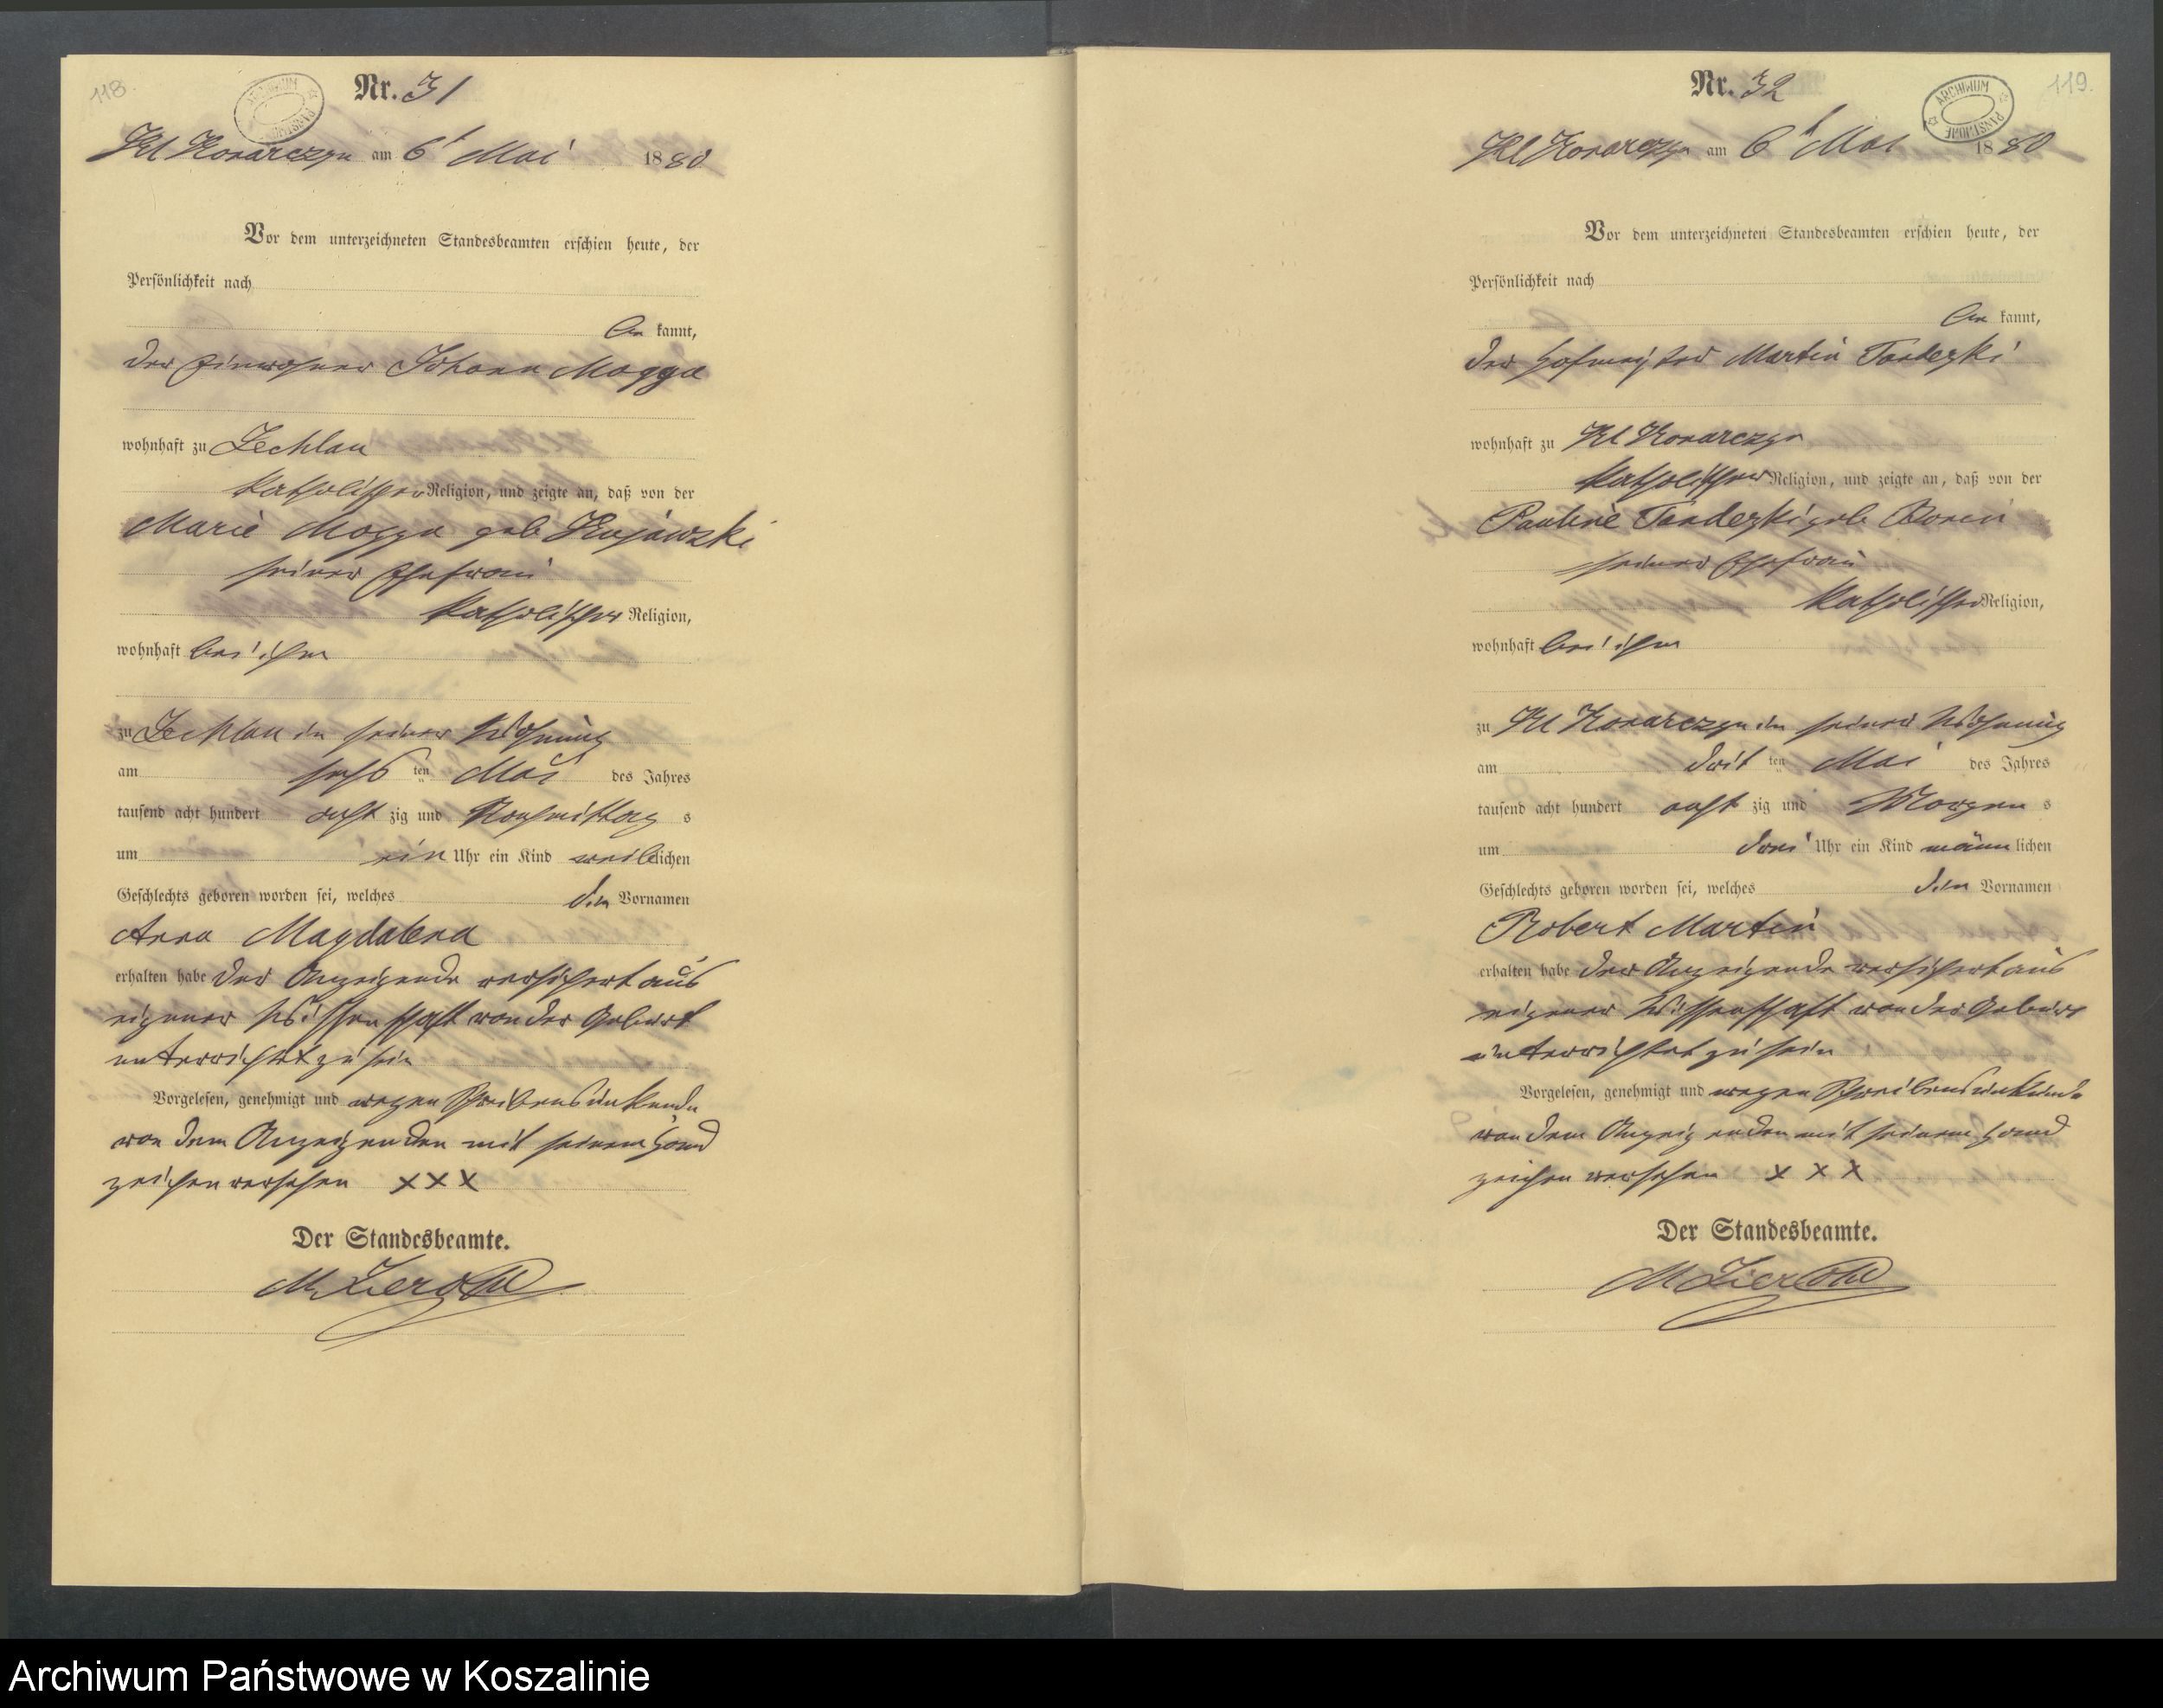 118.
ARCHIWUM PAŃSTWOWE
Nr. 31
Kl Konarczyn am 6t Mai 1880
Vor dem unterzeichneten Standesbeamten erschien heute, der
Persönlichkeit nach
be kannt,
der Einwohner Johann Mogga
wohnhaft zu Zechlau
katholischer Religion, und zeigte an, daß von der
Marie Mogga geb Kujawzki
seiner Ehefrau
katholischer Religion,
wohnhaft bei ihm
zu Zechlau in seiner Wohnung
am sechs ten Mai des Jahres
tausend acht hundert acht zig und Nachmittag s
um ein Uhr ein Kind weiblichen
Geschlechts geboren worden sei, welches den Vornamen
Anna Magdalena
erhalten habe Der Anzeigende versichert aus
eigener Wissenschaft von der Geburt
unterrichtet zu sein
Vorgelesen, genehmigt und wegen Schreibensunkunde
von dem Anzeigenden mit seinem Hand
zeichen versehen XXX
Der Standesbeamte.
119.
ARCHIWUM PAŃSTWOWE
Nr. 32
Kl Konarczyn am 6t Mai 1880
Vor dem unterzeichneten Standesbeamten erschien heute, der
Persönlichkeit nach
be kannt,
der Hofmeister Martin
wohnhaft zu Kl Konarczyn
katholischer Religion, und zeigte an, daß von der
Pauline geb
seiner Ehefrau
katholischer Religion,
wohnhaft bei ihm
zu Kl Konarczyn in seiner Wohnung
am drit ten Mai des Jahres
tausend acht hundert acht zig und Morgen s
um drei Uhr ein Kind männlichen
Geschlechts geboren worden sei, welches den Vornamen
Robert Martin
erhalten habe Der Anzeigende versichert aus
eigener Wissenschaft von der Geburt
unterrichtet zu sein
Vorgelesen, genehmigt und wegen Schreibensunkunde
von dem Anzeigenden mit seinem Hand
zeichen versehen X X X
Der Standesbeamte.
Archiwum Państwowe w Koszalinie